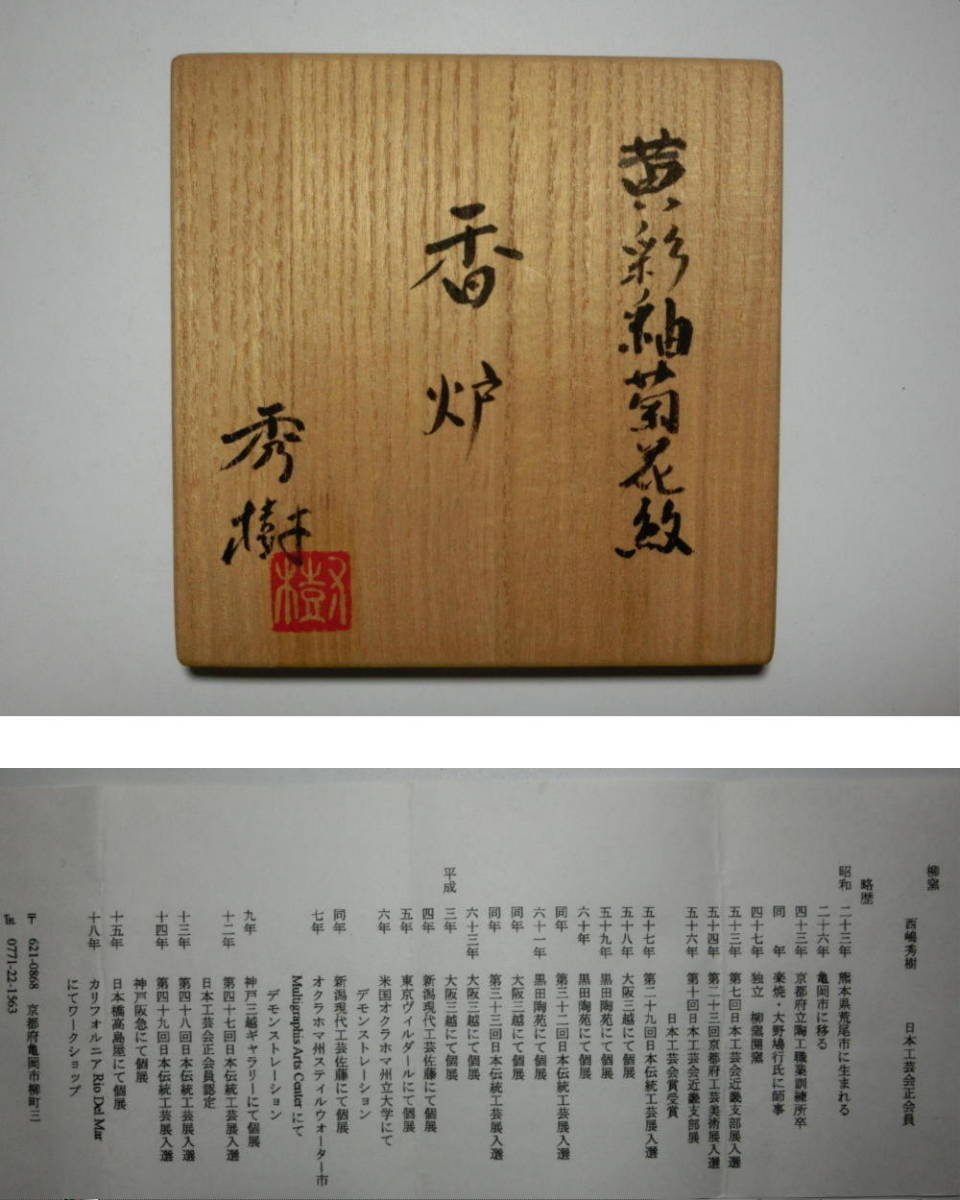 黄彩釉菊花紋
香炉
秀樹
樹
柳窯
西嶋秀樹　日本工芸会正会員
略歴
昭和　二十三年　熊本県荒尾市に生まれる
二十六年　亀岡市に移る
四十三年　京都府立陶工職業訓練所卒
同　年　楽焼・大野鳩行氏に師事
四十七年　独立　柳窯開窯
五十三年　第七回日本工芸会近畿支部展入選
五十四年　第二十三回京都府工芸美術展入選
五十六年　第十回日本工芸会近畿支部展
日本工芸会賞受賞
五十七年　第二十九回日本伝統工芸展入選
五十八年　大阪三越にて個展
五十九年　黒田陶苑にて個展
六十年　黒田陶苑にて個展
同年　第三十二回日本伝統工芸展入選
六十一年　黒田陶苑にて個展
同年　大阪三越にて個展
同年　第三十三回日本伝統工芸展入選
六十三年　大阪三越にて個展
平成　三年　大阪三越にて個展
四年　新潟現代工芸佐藤にて個展
五年　東京ヴィルダールにて個展
六年　米国オクラホマ州立大学にて
デモンストレーション
同年　新潟現代工芸佐藤にて個展
七年　オクラホマ州スティルウオーター市
Multigraphis Arts Center にて
デモンストレーション
九年　神戸三越ギャラリーにて個展
十二年　第四十七回日本伝統工芸展入選
日本工芸会正会員認定
十三年　第四十八回日本伝統工芸展入選
十四年　第四十九回日本伝統工芸展入選
神戸阪急にて個展
十五年　日本橋高島屋にて個展
十八年　カリフォルニア Rio Del Mar
にてワークショップ
〒 621-0868　京都府亀岡市柳町三
℡ 0771-22-1563